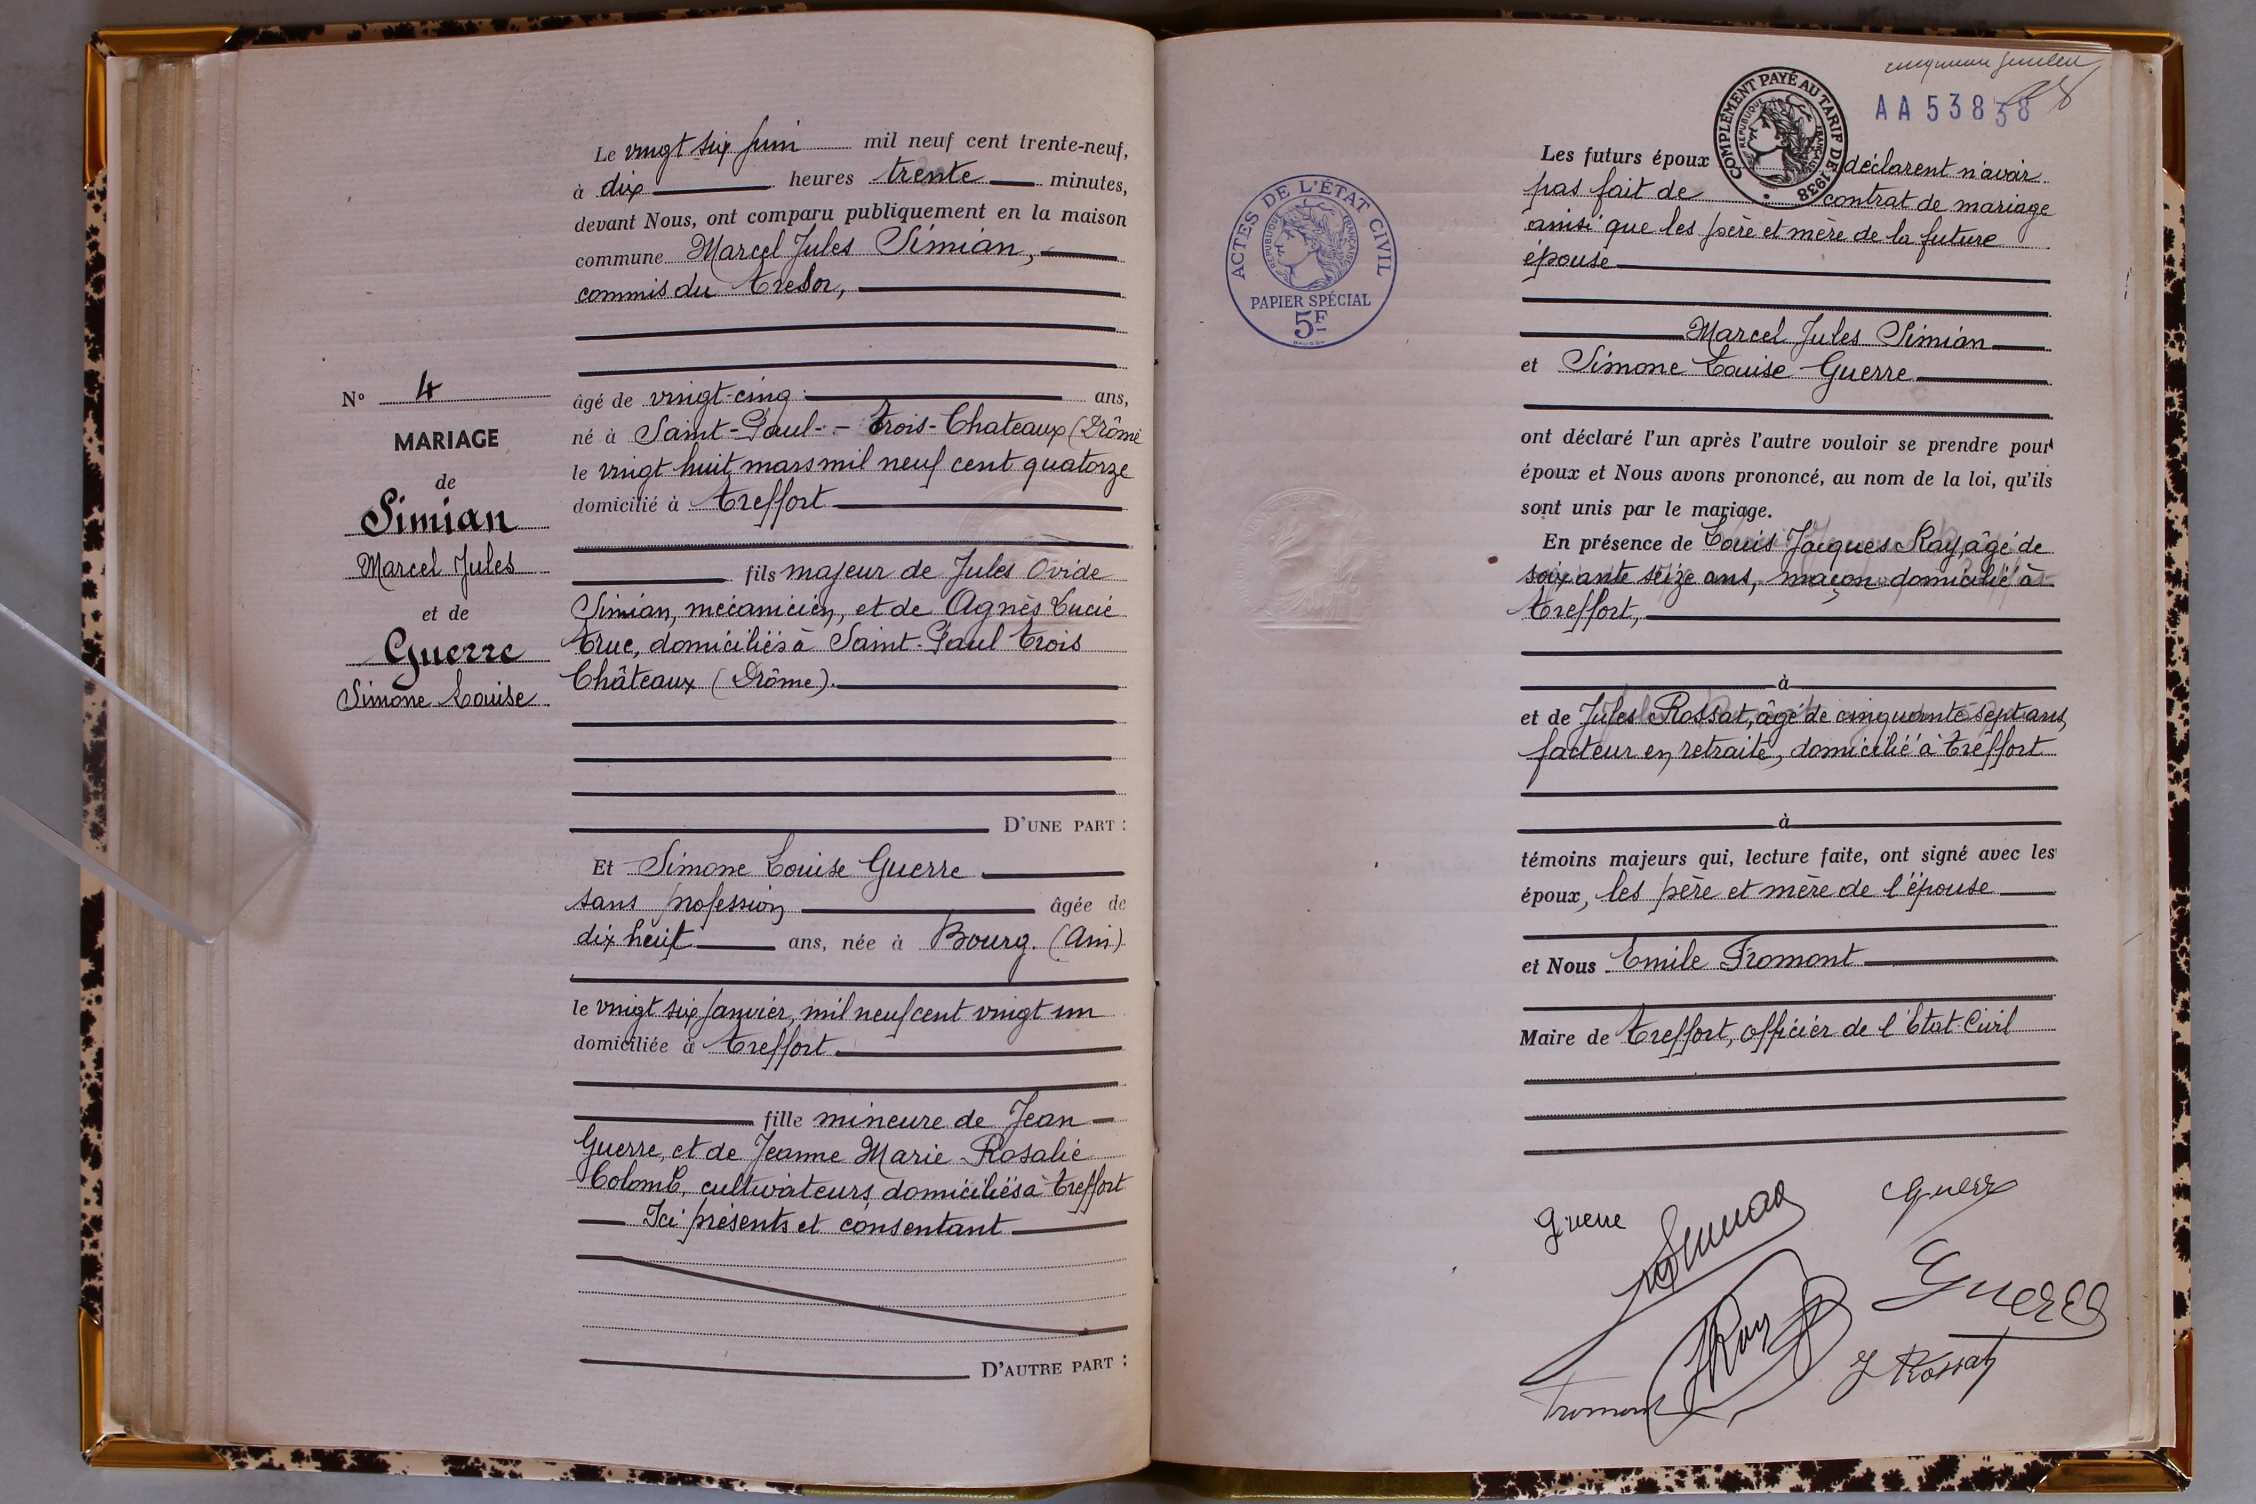 Le vingt six juin mil neuf cent trente-neuf,
à dix heures trente minutes,
devant Nous, ont comparu publiquement en la maison
commune Marcel Jules Simian,
commis du trésor,
N° 4
MARIAGE
de
Simian
Marcel Jules
et de
Guerre
Simone Louise
âgé de vingt-cinq ans,
né à Saint-Paul-Trois-Chateaux (Drôme
le vingt huit mars mil neuf cent quatorze
domicilié à Treffort
fils majeur de Jules Ovide
Simian, mécanicien, et de Agnès Lucie
Truc, domiciliés à Saint-Paul Trois
Châteaux (Drôme).
D'UNE PART :
Et Simone Louise Guerre
sans profession âgée de
dix huit ans, née à Bourg. (Ain)
le vingt six janvier, mil neuf cent vingt un
domiciliée à Treffort
fille mineure de Jean
Guerre, et de Jeanne Marie Rosalie
Colomb, cultivateurs, domiciliés à Treffort
Ici présents et consentant
D'AUTRE PART :
AA 53838
COMPLÉMENT PAYÉ AU TARIF DE 1938
RÉPUBLIQUE FRANÇAISE
ACTES DE L'ÉTAT CIVIL
RÉPUBLIQUE FRANÇAISE
PAPIER SPÉCIAL
5F
Les futurs époux déclarent n'avoir
pas fait de contrat de mariage
ainsi que les père et mère de la future
épouse
Marcel Jules Simian
et Simone Louise Guerre
ont déclaré l'un après l'autre vouloir se prendre pour
époux et Nous avons prononcé, au nom de la loi, qu'ils
sont unis par le mariage.
En présence de Louis Jacques Ray, âgé de
soixante seize ans, maçon domicilié à
Treffort,
à
et de Jules Rossat, âgé de cinquante sept ans,
facteur en retraite, domicilié à Treffort
à
témoins majeurs qui, lecture faite, ont signé avec les
époux, les père et mère de l'épouse
et Nous Emile Fromont
Maire de Treffort, officier de l'Etat-Civil
Guerre
Simian
Guerre
Guerre
Ray
J Rossat
Fromont